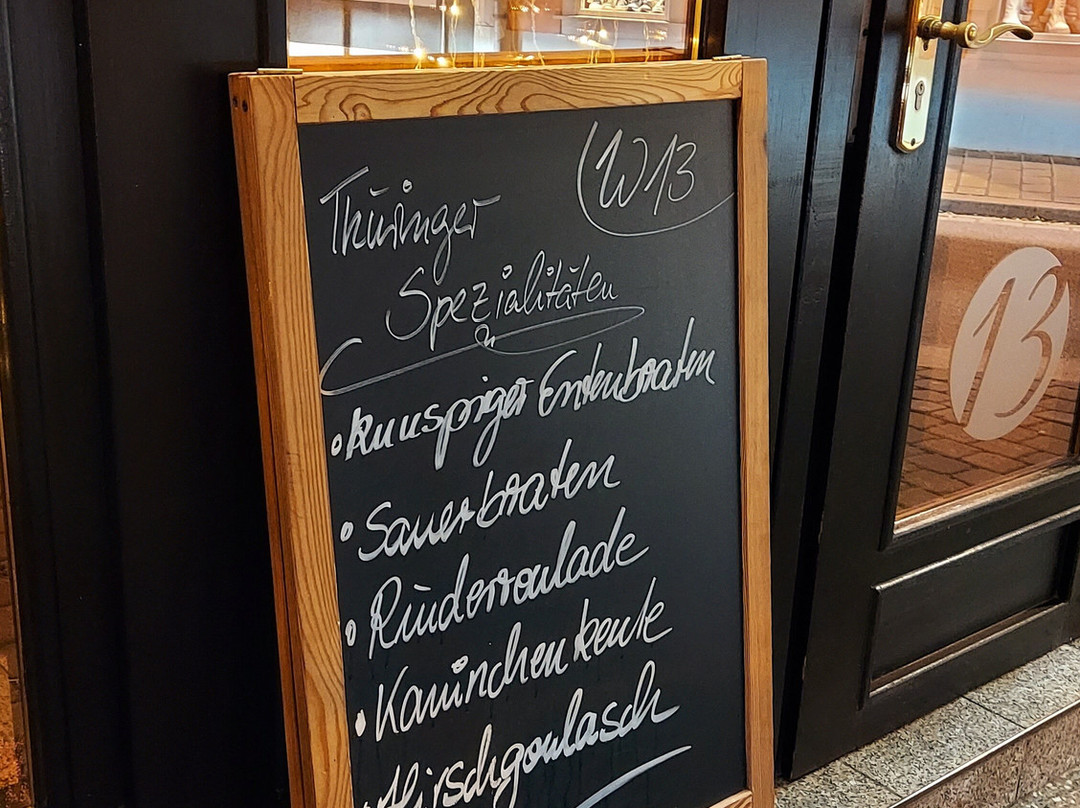 W13
Thüringer
Spezialitäten
• knuspriger Entenbraten
• Sauerbraten
• Rinderroulade
• Kaninchenkeule
• Hirschgoulasch
13